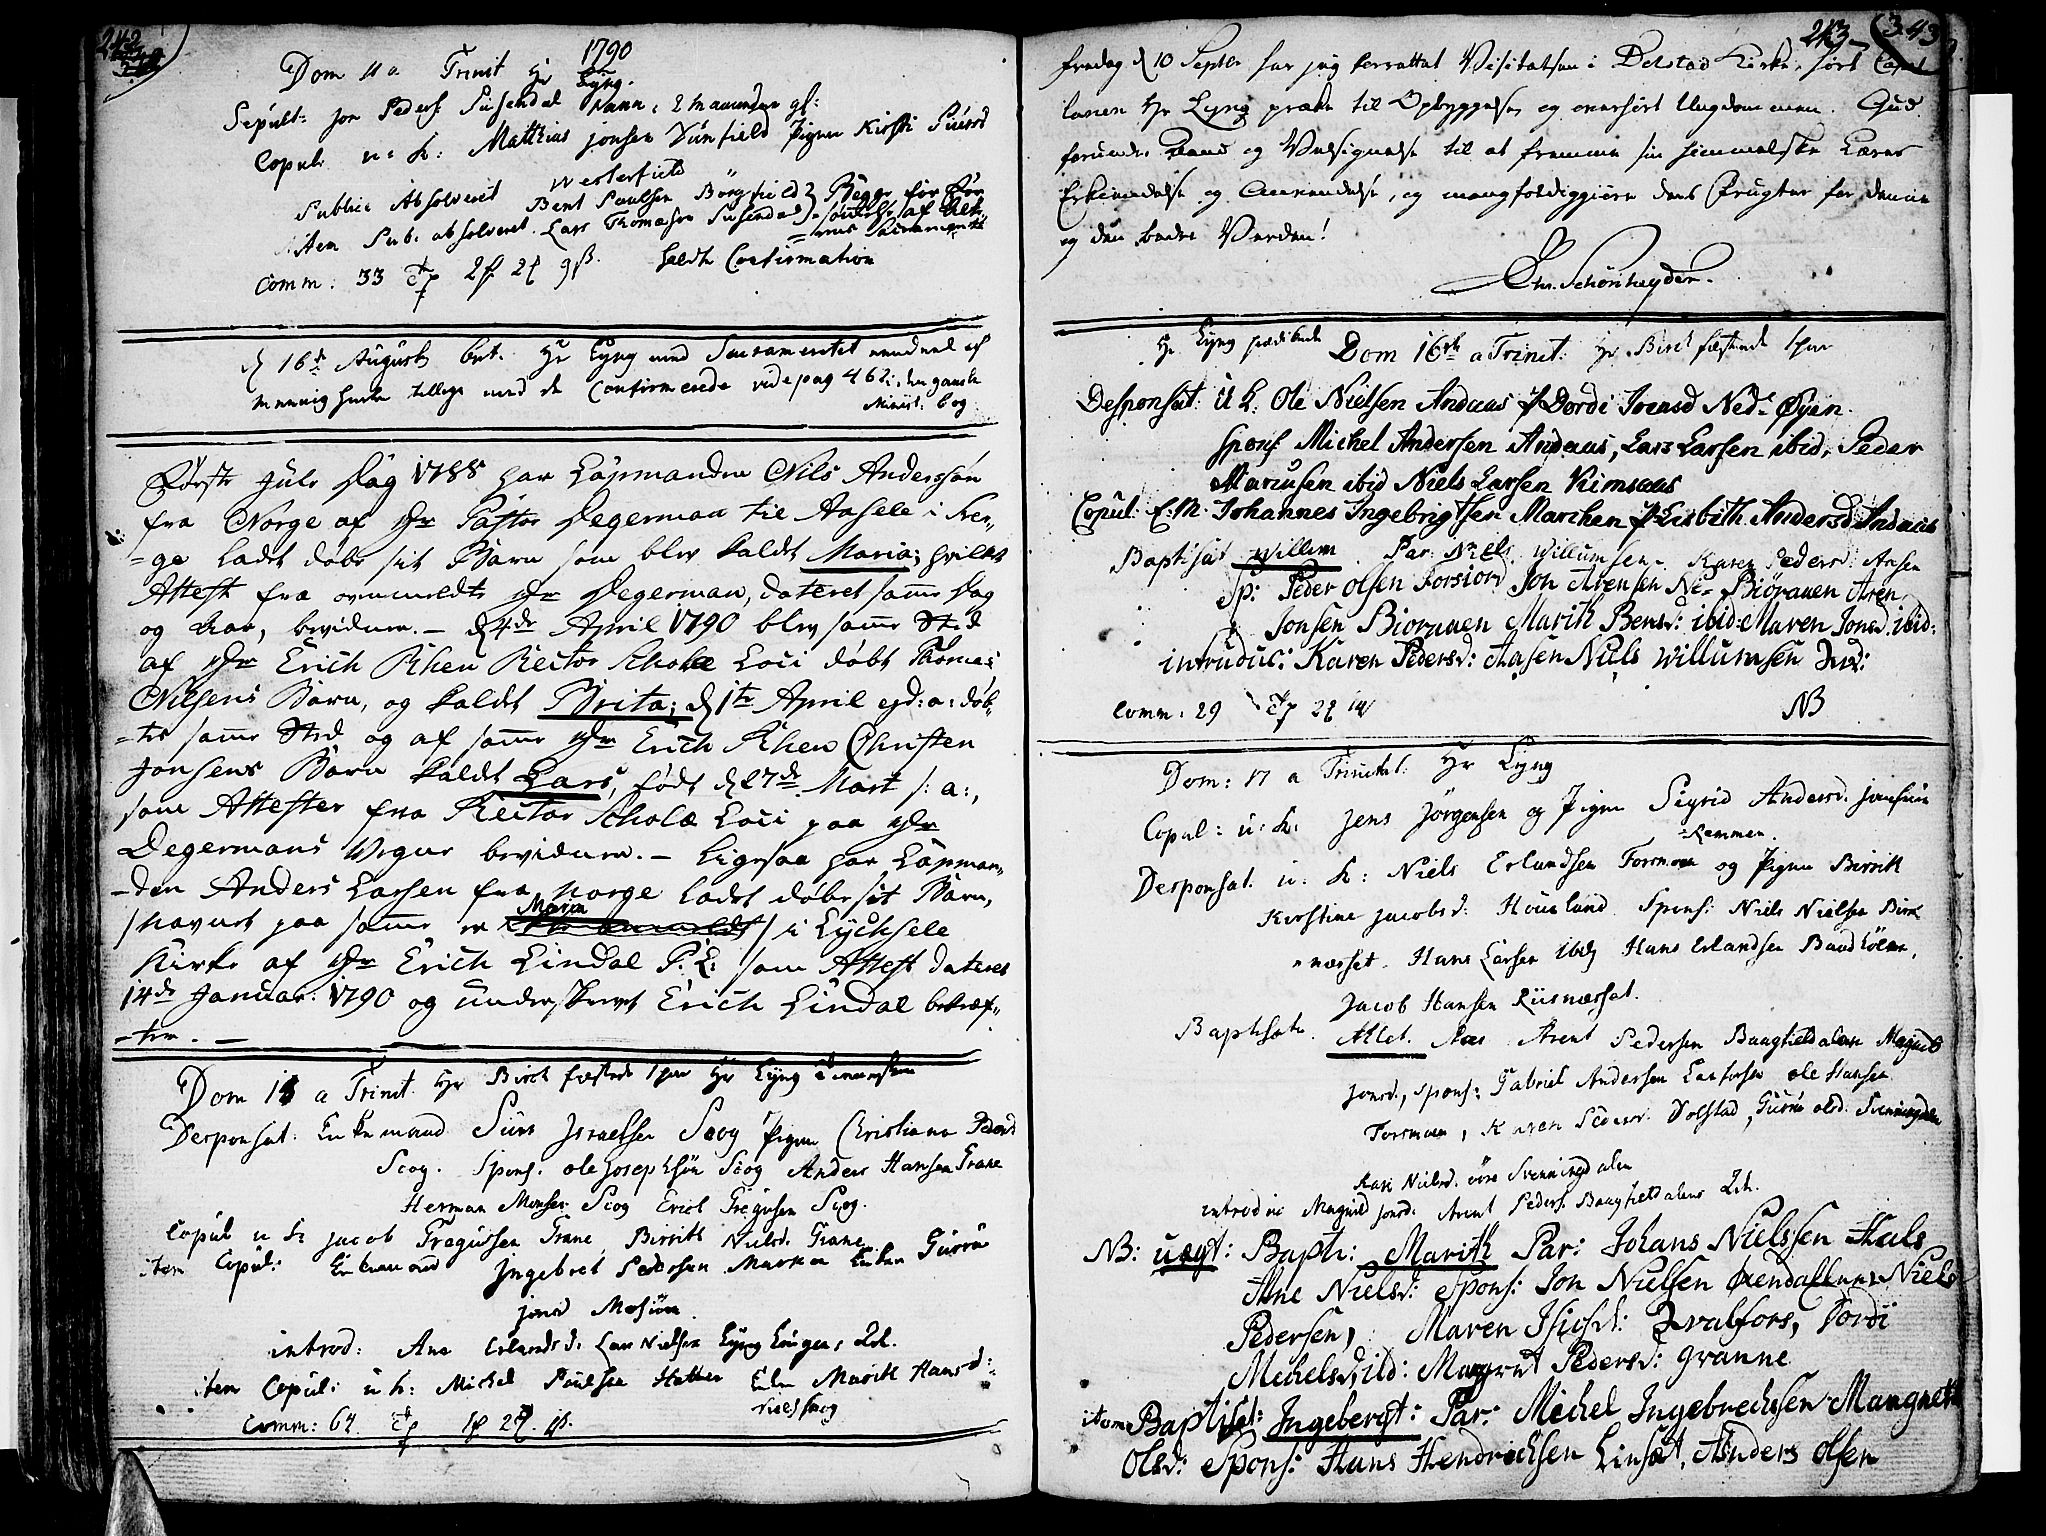 242
1790
Dom 11 a Trinit Hr Lyng.
Sepult: Jon Peders: Susendal Navn: 2 Maaneder gl:
Copul: u: k: Matthias Jonsen Dunfield Pigen Kirsti Siursd
Westerfield
Publice Absolveret Bent Paulsen Børgfield } Begge for For
item Pub: absolveret. Lars Thomasen Susendal } sømmelse af Alte-
=rens Sacramente
Comm: 33 holdt Confirmation
d 16de August bet. Hr Lyng med Sacramentet
tillige med de Confirmerede vide pag 462 i den gamle
Minist: bog
Første Jule Dag 1788 har Lapmanden Nils Anderssøn
fra Norge af Hr Pastor Degerman til Aasele i Sver-
=ge ladet døbe sit Barn som blev kaldet Maria; hvilket
Attest fra ovenmeldte Hr Degerman, dateret samme Dag
og Aar, beviduer. – d 4de April 1790 blev samme Sted
af Hr Erich Rhen Rector Scholæ Loci døbt Thomas
Nilsens Barn, og kaldet Brita; d 1te April ejd: a: døb-
=tes samme Sted og af samme Hr Erich Rhen Christen
Jonsens Barn kaldet Lars, født d 27de Mart s: a:,
som Attester fra Rector Scholæ Loci paa Hr
Degermans Vegne beviduer. – Ligesaa har Lapman-
-den Anders Larsen fra Norge ladet døbe sit Barn,
/ Navnet paa samme er Maria / i Lychsele
Kirke af Hr Erich Lindal P: L: som Attest dateret
14de Januar: 1790 og underskrevet Erich Lindal bekræf-
-ter. –
Dom 14 a Trinit Hr Birch fæstede 1 par Hr Lyng
Desponsat: Enkemand Siur Israelsen Scog Pigen Christiana Pedersd
Scog. Spons: Ole Josephsøn Scog Anders Hansen Grane
Herman Monsen Scog Erich Gregusen Scog.
Copul u k Jacob Gregussen Grane Birrith Nielsd. Grane
item Copul: Enkemand Ingebret Pedersen Enken Guru
Jonsd Mosiøen
introd: Ane Erlandsd. Lars Nielsen Lyng
item Copul: u k: Michel Paulsen Hatten Marith Hansd:
Comm: 64
243 343
fredag d 10 Septbr har jeg forrettet Visitatsen i Dolstad Kirke, hørt Capel-
lanen Hr Lyng præke til Opbyggelse og overhørt Ungdommen. Gud
forunde Naade og Velsignelse til at fremme sin himmelske Læres
Erkiendelse og Anvendelse, og mangfoldiggiøre dens Frugter for denne
og den bedre Verden!
Chr. Schønheyder.
Hr Lyng prædikede Dom 16de a Trinit: Hr Birch fæstede 1 par
Desponsat: U k: Ole Nielsen Andaas P Dordi Ivensd Ned: Øyen.
Spons Michel Andersen Andaas, Lars Larsen ibid, Peder
Mariusen ibid Niels Larsen Remsaas
Copul: E: M: Johannes Ingebrigtsen Marchen P Lisbith Andersd Andaas
Baptisat Willem Par: Niels Willumsen. Karen Pedersd: Aasen
Sp: Peder Olsen Forsiord Jon Arensen Ne= Biøraaen Aren
Jonsen Bioraaen Marith Bensd: ibid: Maren Jonsd. ibid:
introduc: Karen Pedersd: Aasen Niels Willumsen
Comm: 29 NB
Dom: 17 a Trinitat: Hr Lyng
Copul: u: k: Jens Jørgensen og Pigen Sigrid Andersd.
-Remmen.
Desponsat. u. k: Niels Erlandsen Forsmoen og Pigen Birrith
Kirstine Jacobsd: Houelund Spons: Niels Nielsen
=næsset. Hans Larsen ibid Hans Erlandsen
Jacob Hansen Riisnæsset.
Baptisat. Allet. Par Arent Pedersen Baagfieldalen Magnild
Jonsd, Spons: Gabriel Andersen Laxforsen Ole Hansen
Forsmoen, Karen Pedersd: Dolstad, Guru Olsd. Svenningdalen
Kari Nielsd. øvre Svenningdalen
introduc Magnild Jonsd. Arent Peders: Baagfieldalens
NB: uægt: Bapt: Marith Par: Johans Nielssen Hals
Ane Nielsd: Spons: Jon Nielsen Niels
Pedersen, Maren Qvalfors, Dordi
Michelsd, ibd: Margrit Pedersd: Granne
item Baptiset: Ingebergt: Par: Michel Ingebrechssen Mangnete
Olsd: Spons: Hans Hendrechsen Linsæt, Anders Olsen